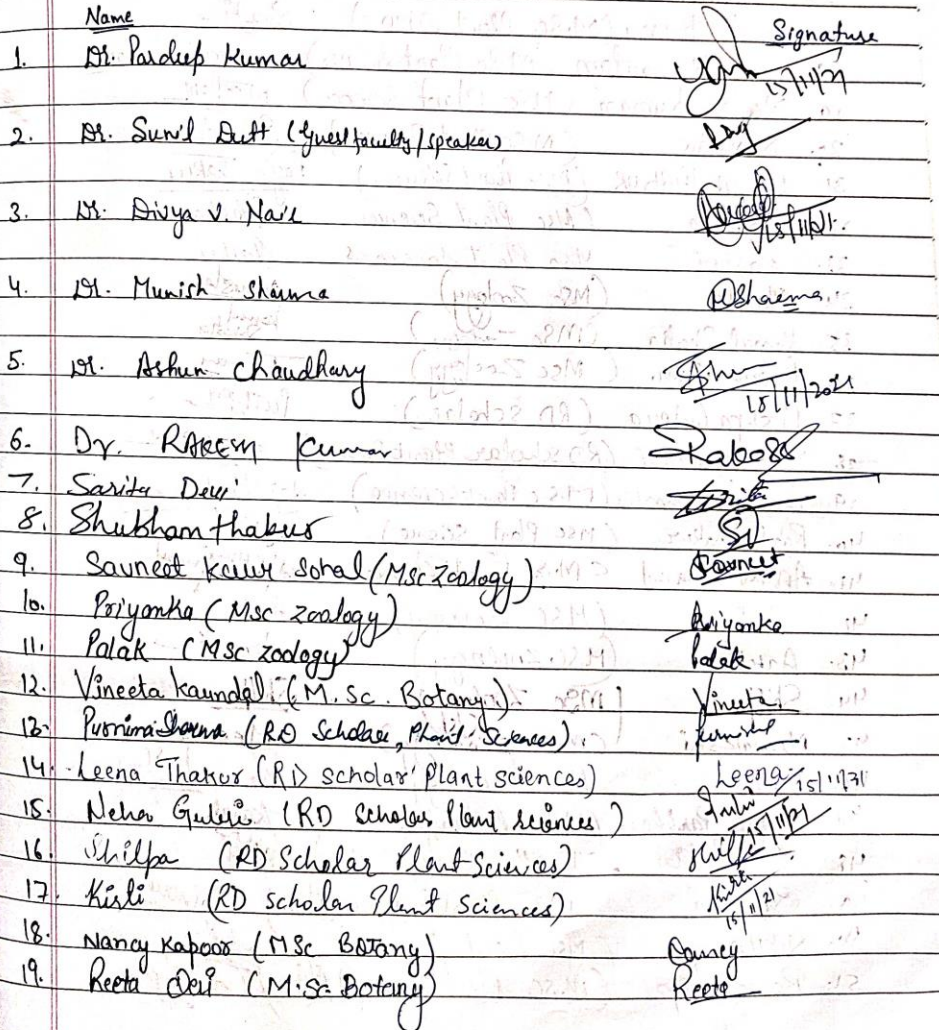 Name Signature
1. Dr. Pardeep Kumar 15/11/21
2. Dr. Sunil Dutt (Guest faculty/speaker)
3. Dr. Divya V. Nair 15/11/21.
4. Dr. Munish Sharma MSharma
5. Dr. Ashun Chaudhary 15/11/2021
6. Dr. RAKESH Kumar
7. Sarita Devi Sarita
8. Shubham thakur
9. Savneet Kaur Sohal (Msc Zoology) Savneet
10. Priyanka (MSc zoology) Priyanka
11. Palak (MSc zoology) Palak
12. Vineeta Kaundal (M.Sc. Botany) Vineeta
13. Purnima Sharma (RD Scholar, Plant Sciences).
14. Leena Thakur (RD scholar Plant sciences) Leena 15/11/21
15. Neha Guleri (RD Scholar Plant sciences) 15/11/21
16. Shilpa (RD Scholar Plant Sciences)
17. (RD scholar Plant Sciences) 15/11/21
18. Nancy Kapoor (MSc Botany) Nancy
19. Reeta Devi (M.Sc. Botany) Reeta